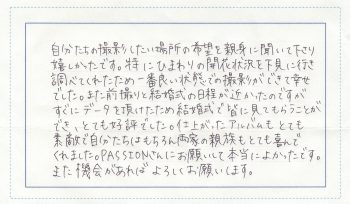 自分たちの撮影したい場所の希望を親身に聞いて下さり
嬉しかったです。特にひまわりの開花状況を下見に行き
調べてくれたため一番良い状態での撮影ができて幸せ
でした。また前撮りと結婚式の日程が近かったのですが
すぐにデータを頂けたため結婚式で皆に見てもらうことが
でき、とても好評でした。仕上がったアルバムもとても
素敵で自分たちはもちろん両家の親族もとても喜んで
くれました。PASSIONさんにお願いして本当によかったです。
また機会があればよろしくお願いします。